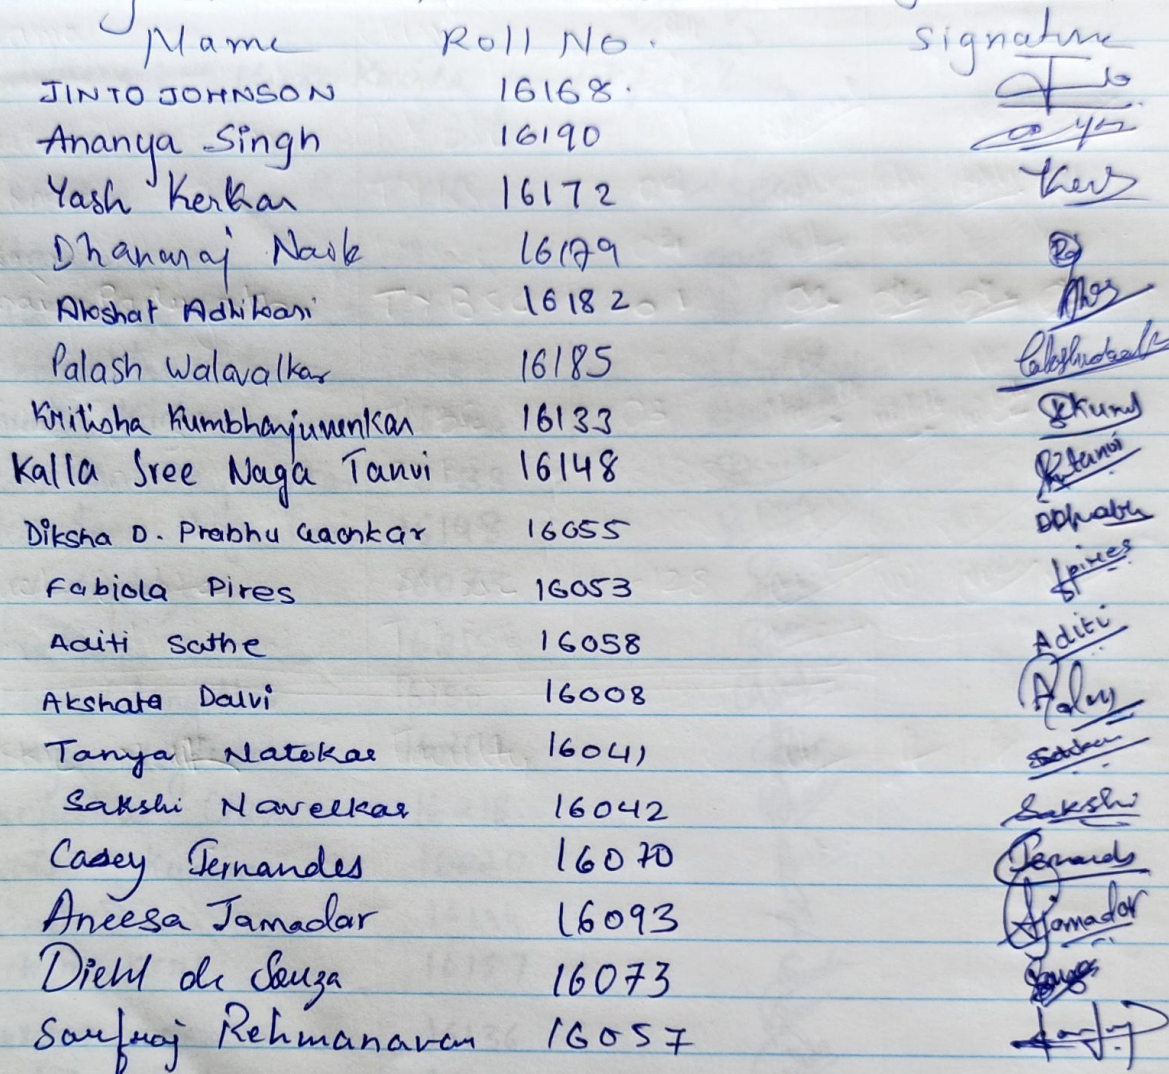 Name Roll No. Signature
JINTO JOHNSON 16168.
Ananya Singh 16190
Yash Kerkar 16172 Kerk
Dhanaraj Naik 16179
Akshat Adhikari 16182
Palash Walavalkar 16185
Kritisha Kumbharjuvenkar 16133
Kalla Sree Naga Tanvi 16148 Ktanvi
Diksha D. Prabhu Gaonkar 16055
Fabiola Pires 16053 fpires
Aditi Sathe 16058 Aditi
Akshata Dalvi 16008
Tanya Natekar 16041
Sakshi Navelkar 16042 Sakshi
Casey Fernandes 16070
Aneesa Jamadar 16093 AJamadar
Diehl de Souza 16073
Sarfraj Rehmanavar 16057